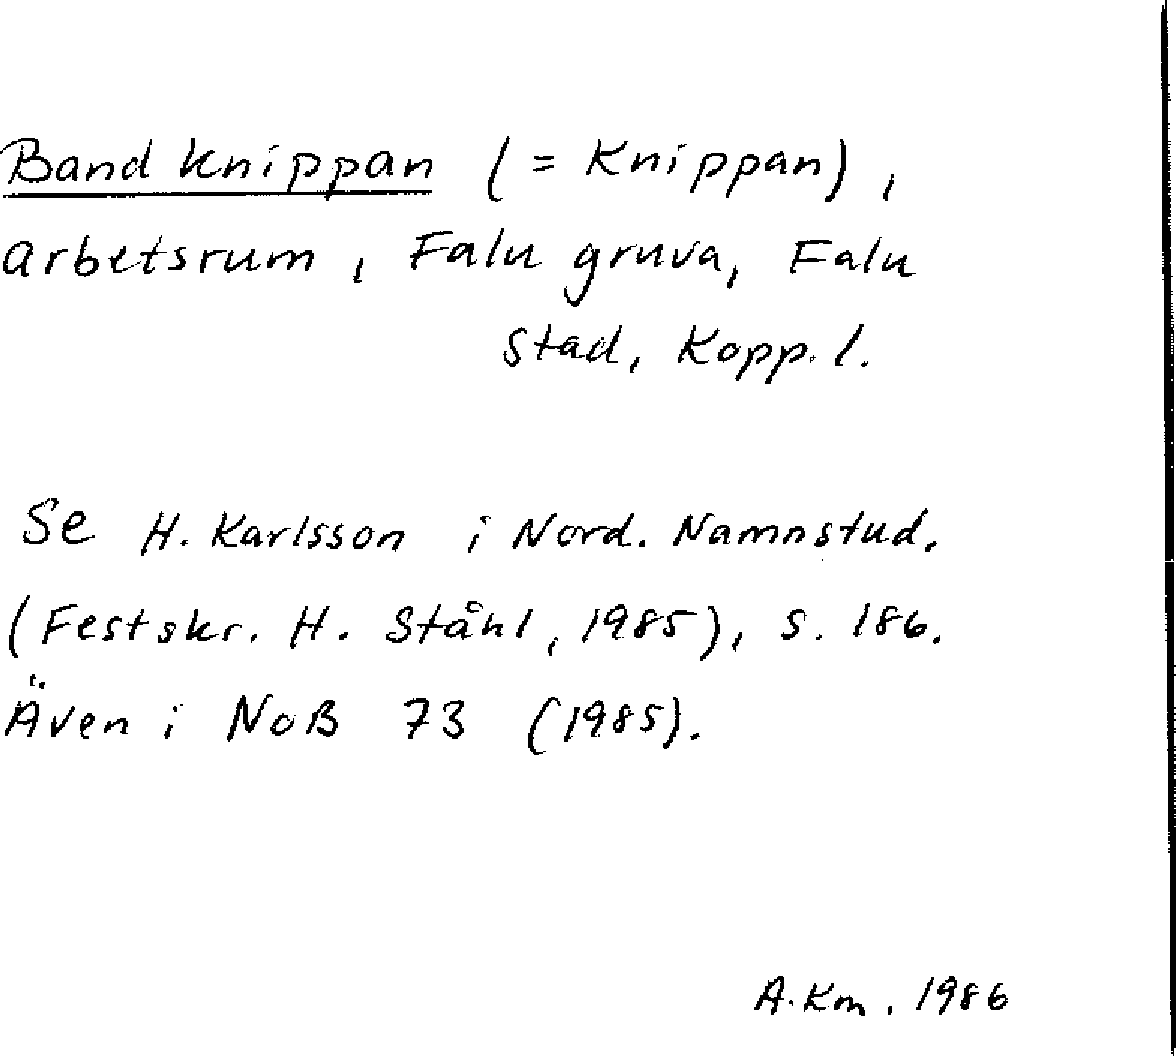 Bandknippan (= Knippan),
arbetsrum, Falu gruva, Falu
stad, Kopp. l.
Se H. Karlsson i Nord. Namnstud.
(Festskr. H. Ståhl, 1985), s. 186.
Även i NoB 73 (1985).
A. Km. 1986